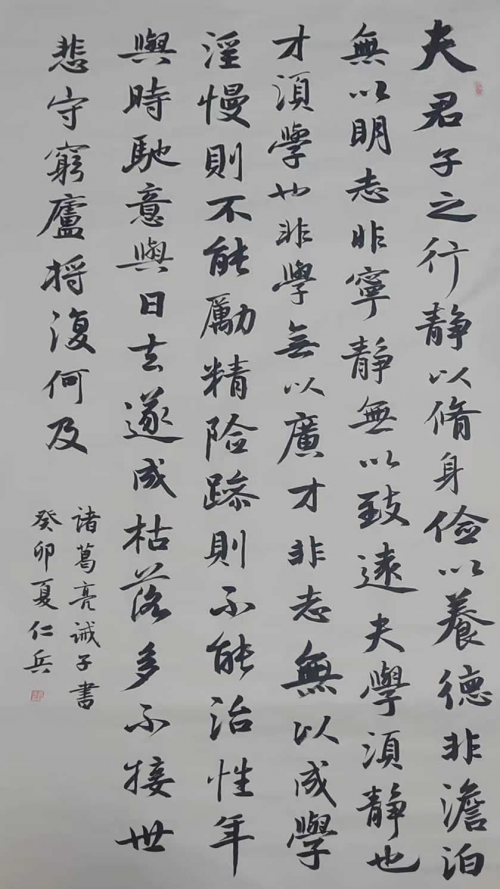 夫君子之行静以脩身儉以養德非澹泊
無以明志非寧静無以致遠夫學須静也
才須學也非學無以廣才非志無以成學
淫慢則不能勵精險躁則不能治性年
與時馳意與日去遂成枯落多不接世
悲守窮廬將復何及
諸葛亮诫子書
癸卯夏仁兵